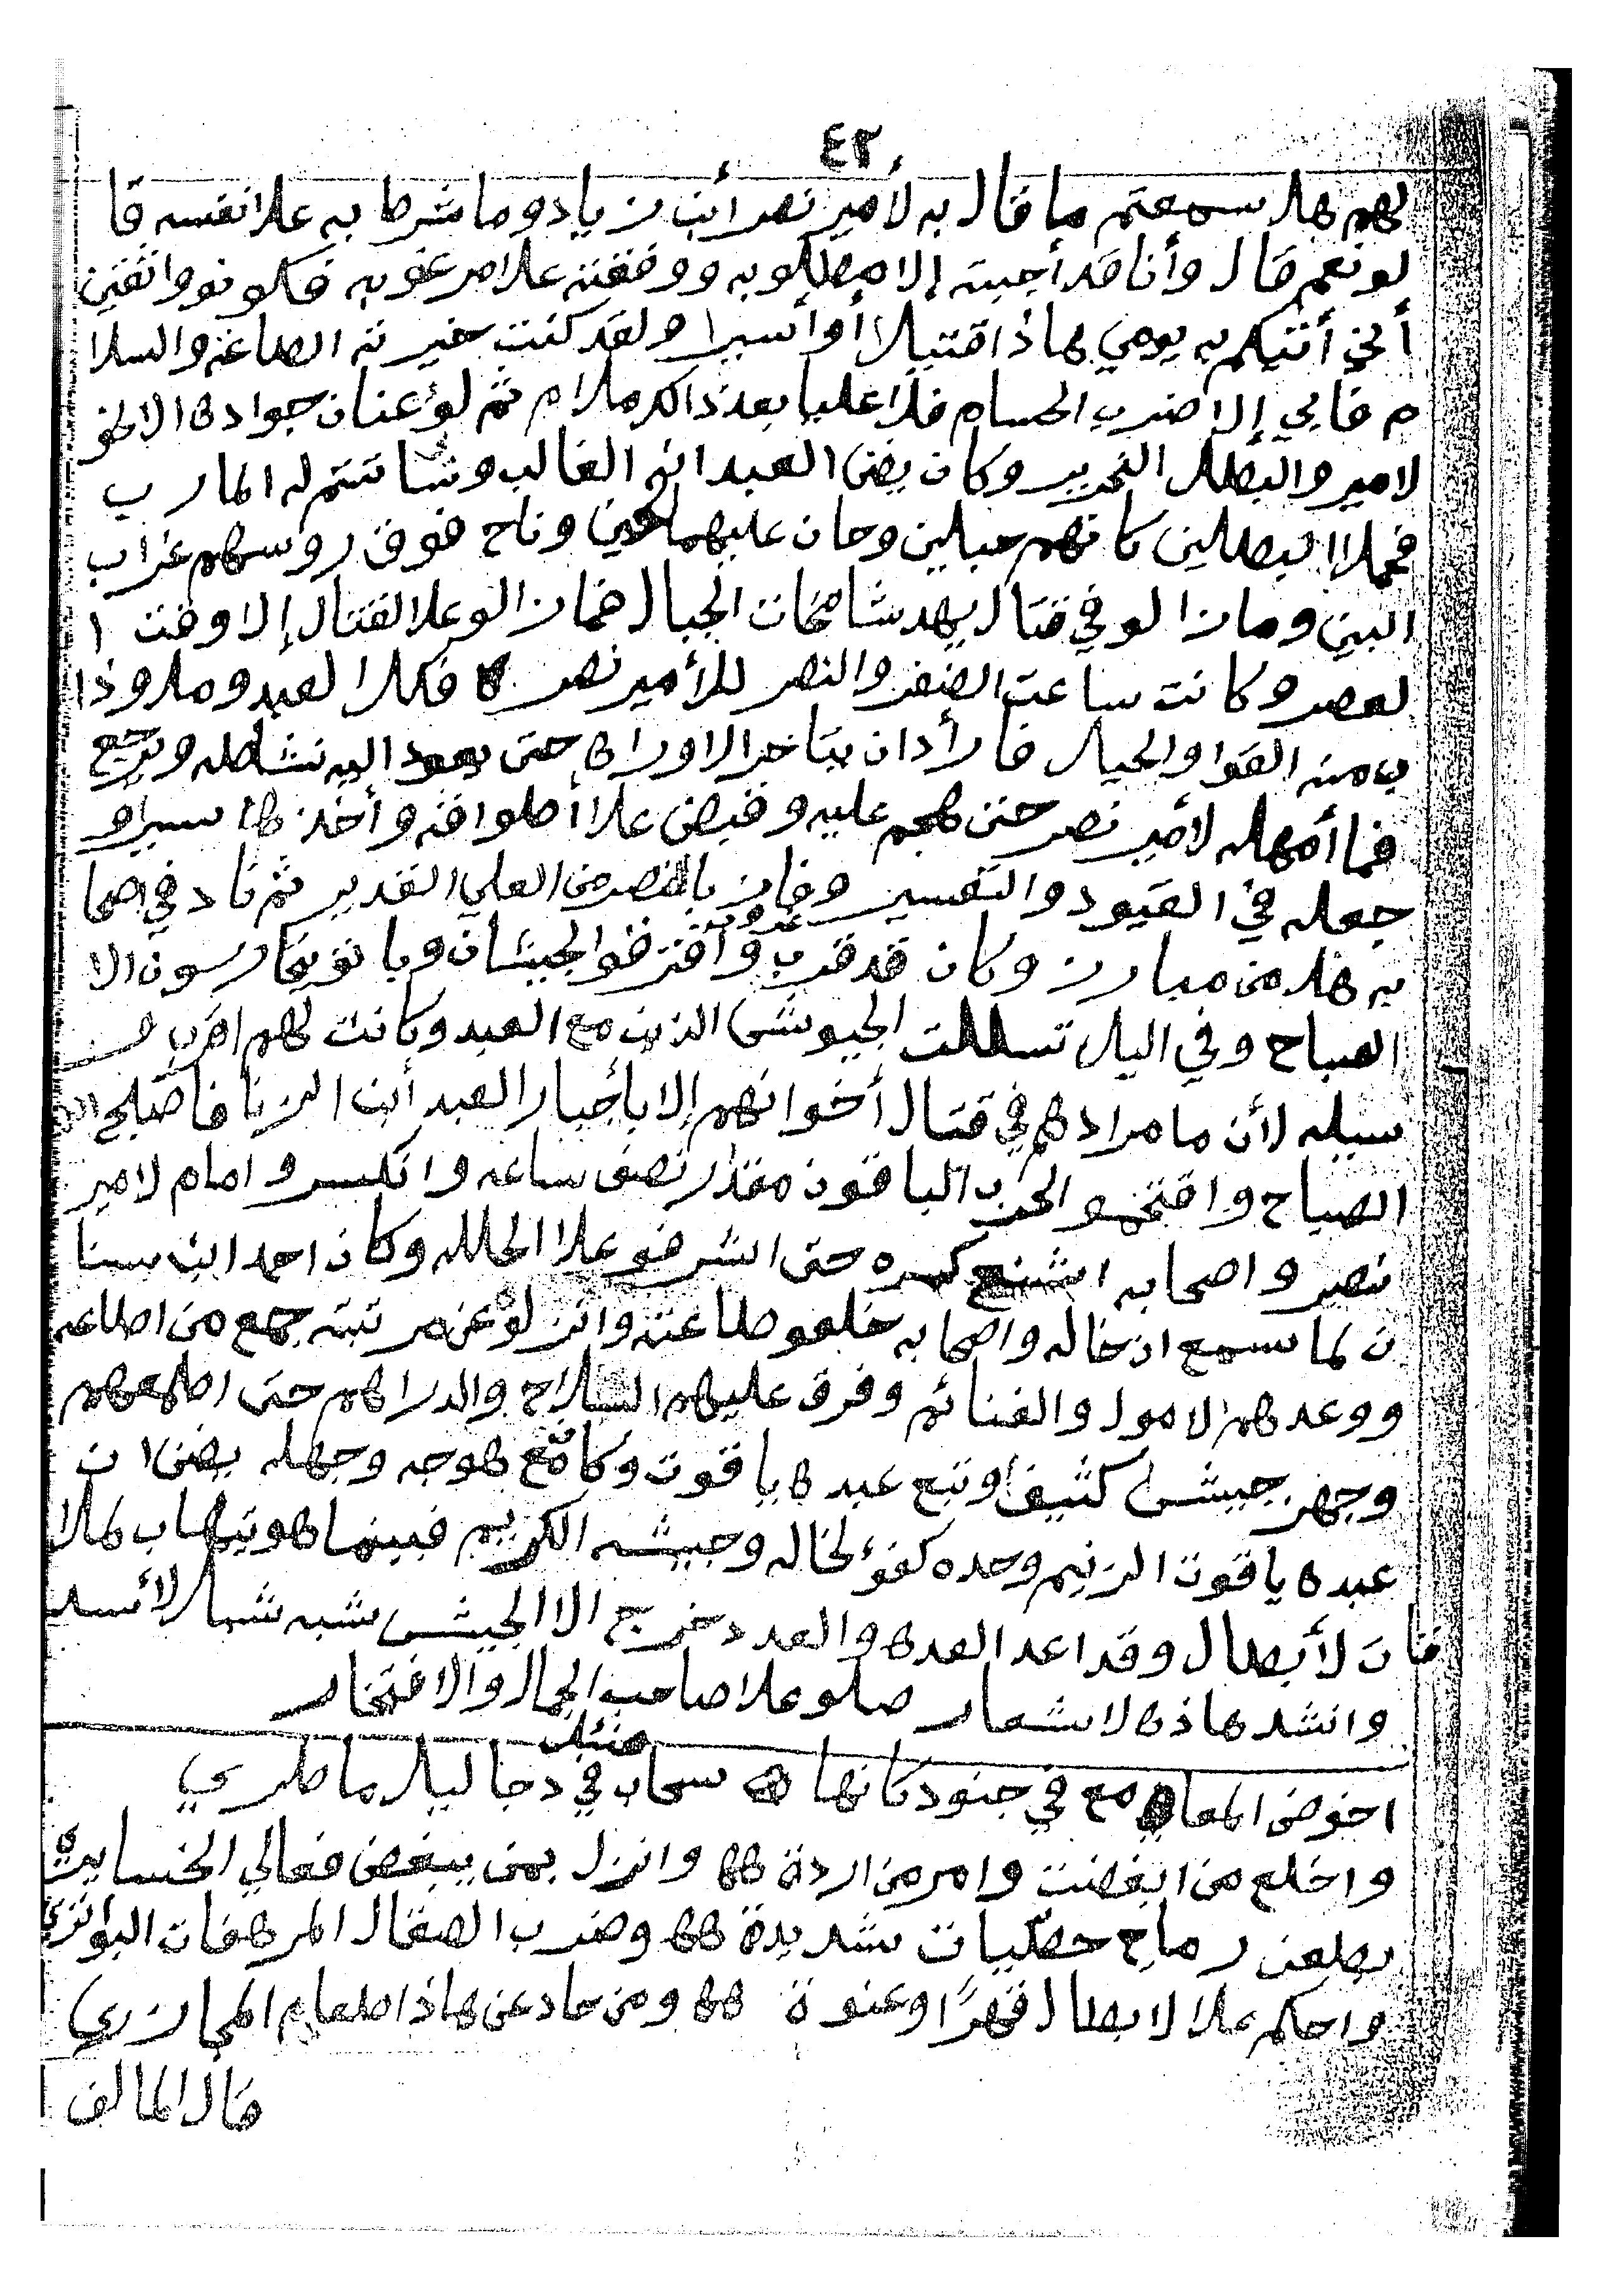 ٤٢
لهم هل سمعتم ما قال به لأمير نصر أبن زياد وما شرط به علا نفسه قا
لو نعم قال وأنا قد أجبته إلا مطلوبه ووفقته علا مرغوبه فكونو واثقين
أني أتيكم به يومي هاذا قتيلا أو أسيرا ولقد كنت خيرته الطاعه والسلا
م فابي إلا ضرب الحسام فلا عليا بعد ذالك ملام ثم لوئ عنان جواده الا نحو
لامير والبطل النحرير وكان يضن العبد انه الغالب وشا تتم له المارب
فحملا البطلين كانهم جبلين وحان عليهما الحين وناح فوق روسهم غراب
البين وما زالو في قتال يهد شامخات الجبال فما زالو علا القتال إلا وقت ا
لعصر وكانت ساعت الضفر والنصر للأمير نصر فكلا العبد وملا وذا
ب منه القوا والحيل فأرادان يتاخر الا وراه حتى يعود اليه نشاطه ويرجع
فما أمهله لأمير نصر حتى هجم عليه وقبض علا أطواقه وأخذه اسيرا و
جعله في القيود والتفسير وفاز بالنصر من العلي القدير ثم ناد في اصحا
به هل من مبارز وكان قد قرب غروب وافترقو الجيشان وباتو يتحارسون الا
الصباح وفي اليل تسللت الجيوش الذين مع العبد وكانت لهم اقرب
سبيله لأن ما مرادهم في قتال أخوانهم إلا بأجبار العبد أبن الزنا فاصبح
الصباح واقتحمو الحرب الباقون مقدار نصف ساعه وانكسرو امام لامير
نصر واصحابه اشنع كسره حتى اشرفو علا الحلله وكان احمد ابن سنا
ن لما سمع ان خاله واصحابه خلعو طاعته وانزلوئ عن مرتبته جمع من اطاعه
ووعدهم الامول والغنائم وفرق عليهم السلاح والدراهم حتى اطمعهم
وجهز جيشا كثيفا وتبع عبده ياقوت وكان مع هوجه وجهله يضن ان
عبده ياقوت الزنيم وحده كفوئ لخاله وجيشه الكريم فبينما هو تيهاب لملا
قات لأبطال وقد اعد العده والعدد خرج الا الجيش شبه شبل لأسد
وانشد هاذه لاشعار صلو علا صاحب الجمال والافتخار
اخوض المعامع في جنود كانها سحاب في دجا ليل ماطري
واخلع من ابغضت وامر من اردة هه وانزل بمن يبغض فعالي الخسايره
بطعن رماح خطيات شديدة هه وضرب الصقال المرهفات البواتري
واحكم علا لابطال قهرًا وعنوة هه ومن حاد عن هاذا طعام المجازري
قال المالف